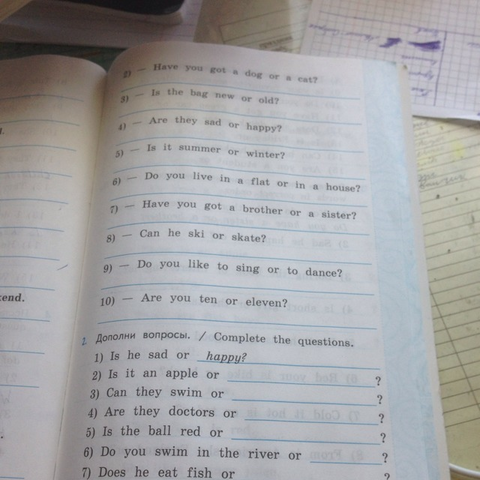 2) — Have you got a dog or a cat?
3) — Is the bag new or old?
4) — Are they sad or happy?
5) — Is it summer or winter?
6) — Do you live in a flat or in a house?
7) — Have you got a brother or a sister?
8) — Can he ski or skate?
9) — Do you like to sing or to dance?
10) — Are you ten or eleven?
2. Дополни вопросы. / Complete the questions.
1) Is he sad or happy?
2) Is it an apple or ?
3) Can they swim or ?
4) Are they doctors or ?
5) Is the ball red or ?
6) Do you swim in the river or ?
7) Does he eat fish or ?